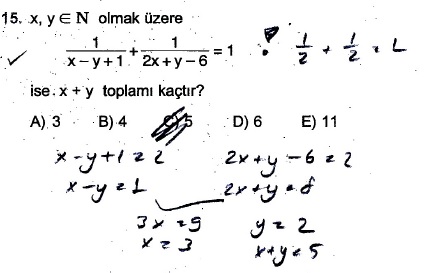 15. x, y ∈ N olmak üzere
1/(x – y + 1) + 1/(2x + y – 6) = 1   1/2 + 1/2 = 1
ise x + y toplamı kaçtır?
A) 3 B) 4 C) 5 D) 6 E) 11
x - y + 1 = 2   2x + y - 6 = 2
x - y = 1   2x + y = 8
3x = 9   y = 2
x = 3   x + y = 5